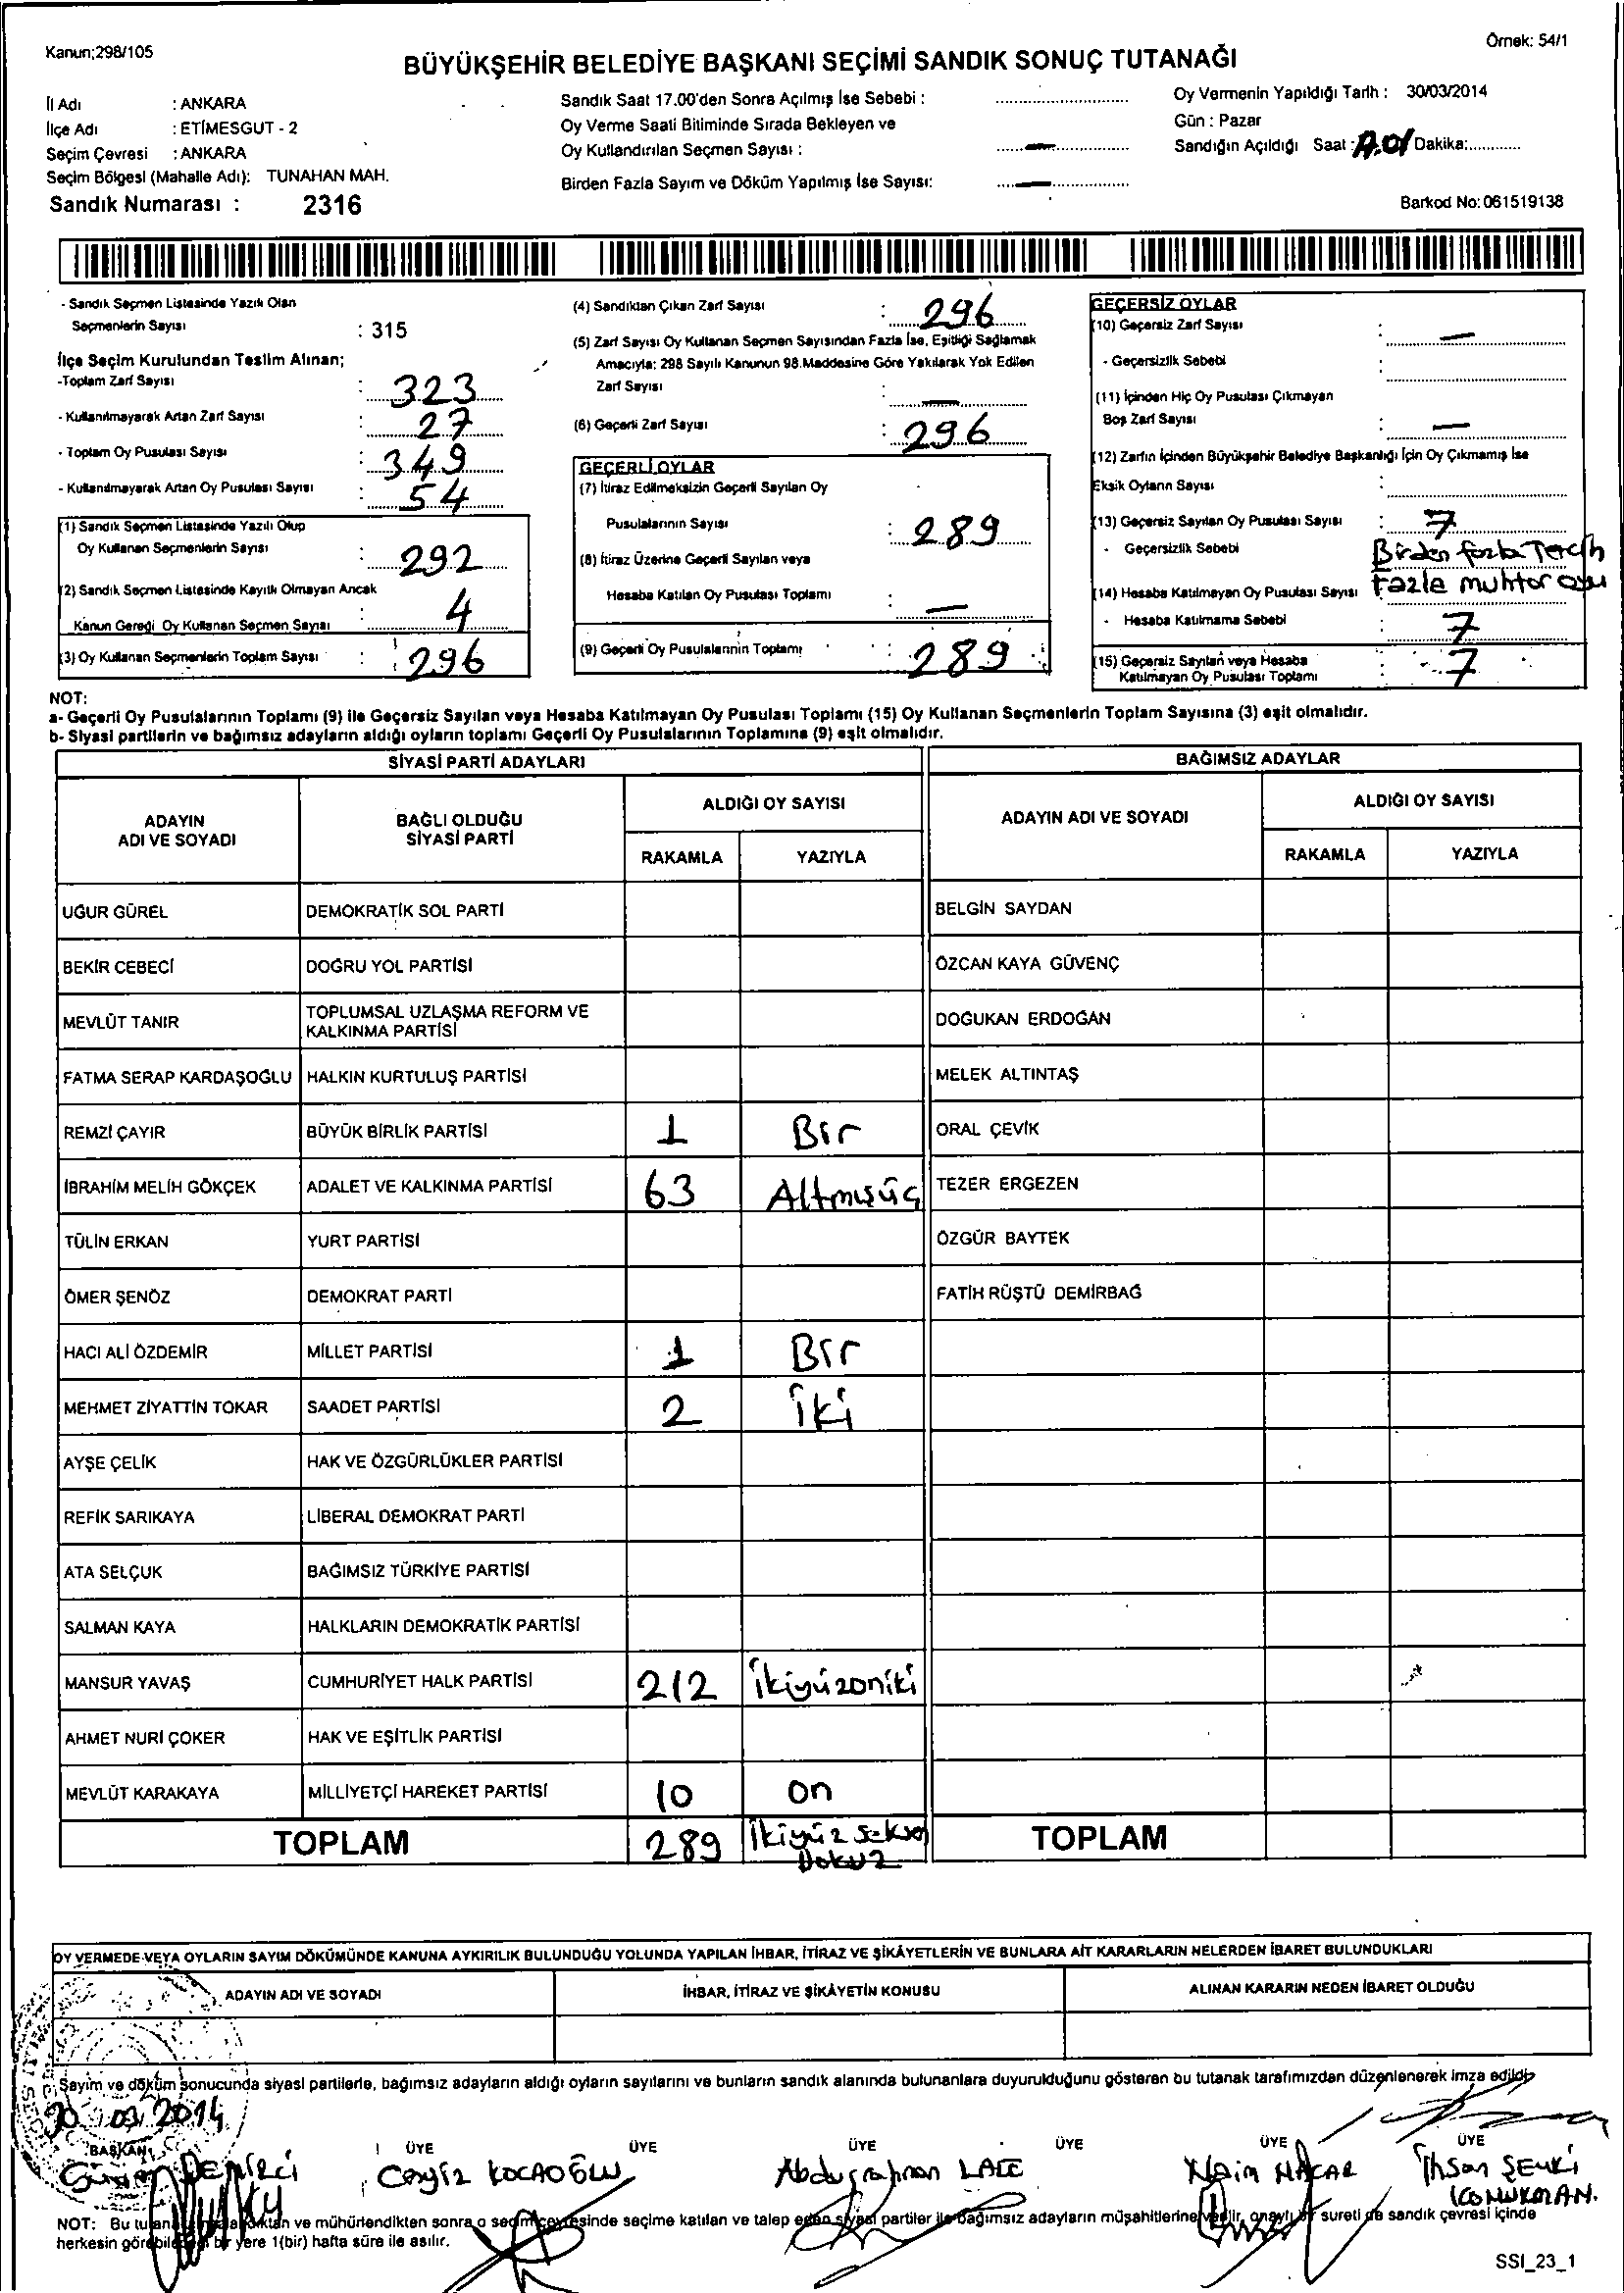 Kanun;298/105
Örnek: 54/1
BÜYÜKŞEHİR BELEDİYE BAŞKANI SEÇİMİ SANDIK SONUÇ TUTANAĞI
İl Adı : ANKARA
İlçe Adı : ETİMESGUT - 2
Seçim Çevresi : ANKARA
Seçim Bölgesi (Mahalle Adı): TUNAHAN MAH.
Sandık Numarası : 2316
Sandık Saat 17.00'den Sonra Açılmış İse Sebebi :
Oy Verme Saati Bitiminde Sırada Bekleyen ve
Oy Kullandırılan Seçmen Sayısı : —
Birden Fazla Sayım ve Döküm Yapılmış İse Sayısı: —
Oy Vermenin Yapıldığı Tarih : 30/03/2014
Gün : Pazar
Sandığın Açıldığı Saat : Dakika:
Barkod No: 061519138
- Sandık Seçmen Listesinde Yazılı Olan
Seçmenlerin Sayısı : 315
İlçe Seçim Kurulundan Teslim Alınan;
-Toplam Zarf Sayısı : 323
- Kullanılmayarak Artan Zarf Sayısı : 27
- Toplam Oy Pusulası Sayısı : 349
- Kullanılmayarak Artan Oy Pusulası Sayısı : 54
(1) Sandık Seçmen Listesinde Yazılı Olup
Oy Kullanan Seçmenlerin Sayısı : 292
(2) Sandık Seçmen Listesinde Kayıtlı Olmayan Ancak
Kanun Gereği Oy Kullanan Seçmen Sayısı : 4
(3) Oy Kullanan Seçmenlerin Toplam Sayısı : 296
(4) Sandıktan Çıkan Zarf Sayısı : 296
(5) Zarf Sayısı Oy Kullanan Seçmen Sayısından Fazla İse, Eşitliği Sağlamak
Amacıyla; 298 Sayılı Kanunun 98.Maddesine Göre Yakılarak Yok Edilen
Zarf Sayısı : —
(6) Geçerli Zarf Sayısı : 296
GEÇERLİ OYLAR
(7) İtiraz Edilmeksizin Geçerli Sayılan Oy
Pusulalarının Sayısı : 289
(8) İtiraz Üzerine Geçerli Sayılan veya
Hesaba Katılan Oy Pusulası Toplamı : —
(9) Geçerli Oy Pusulalarının Toplamı : 289
GEÇERSİZ OYLAR
(10) Geçersiz Zarf Sayısı : —
- Geçersizlik Sebebi :
(11) İçinden Hiç Oy Pusulası Çıkmayan
Boş Zarf Sayısı : —
(12) Zarfın İçinden Büyükşehir Belediye Başkanlığı İçin Oy Çıkmamış İse
Eksik Oyların Sayısı :
(13) Geçersiz Sayılan Oy Pusulası Sayısı : 7
- Geçersizlik Sebebi Birden fazla Tercih
(14) Hesaba Katılmayan Oy Pusulası Sayısı Fazla muhtar oyu
- Hesaba Katılmama Sebebi : 7
(15) Geçersiz Sayılan veya Hesaba
Katılmayan Oy Pusulası Toplamı : 7
NOT:
a- Geçerli Oy Pusulalarının Toplamı (9) ile Geçersiz Sayılan veya Hesaba Katılmayan Oy Pusulası Toplamı (15) Oy Kullanan Seçmenlerin Toplam Sayısına (3) eşit olmalıdır.
b- Siyasi partilerin ve bağımsız adayların aldığı oyların toplamı Geçerli Oy Pusulalarının Toplamına (9) eşit olmalıdır.
SİYASİ PARTİ ADAYLARI
BAĞIMSIZ ADAYLAR
ADAYIN
ADI VE SOYADI
BAĞLI OLDUĞU
SİYASİ PARTİ
ALDIĞI OY SAYISI
RAKAMLA YAZIYLA
ADAYIN ADI VE SOYADI
ALDIĞI OY SAYISI
RAKAMLA YAZIYLA
UĞUR GÜREL DEMOKRATİK SOL PARTİ BELGİN SAYDAN
BEKİR CEBECİ DOĞRU YOL PARTİSİ ÖZCAN KAYA GÜVENÇ
MEVLÜT TANIR TOPLUMSAL UZLAŞMA REFORM VE
KALKINMA PARTİSİ DOĞUKAN ERDOĞAN
FATMA SERAP KARDAŞOĞLU HALKIN KURTULUŞ PARTİSİ MELEK ALTINTAŞ
REMZİ ÇAYIR BÜYÜK BİRLİK PARTİSİ 1 Bir ORAL ÇEVİK
İBRAHİM MELİH GÖKÇEK ADALET VE KALKINMA PARTİSİ 63 Altmışüç TEZER ERGEZEN
TÜLİN ERKAN YURT PARTİSİ ÖZGÜR BAYTEK
ÖMER ŞENÖZ DEMOKRAT PARTİ FATİH RÜŞTÜ DEMİRBAĞ
HACI ALİ ÖZDEMİR MİLLET PARTİSİ 1 Bir
MEHMET ZİYATTİN TOKAR SAADET PARTİSİ 2 İki
AYŞE ÇELİK HAK VE ÖZGÜRLÜKLER PARTİSİ
REFİK SARIKAYA LİBERAL DEMOKRAT PARTİ
ATA SELÇUK BAĞIMSIZ TÜRKİYE PARTİSİ
SALMAN KAYA HALKLARIN DEMOKRATİK PARTİSİ
MANSUR YAVAŞ CUMHURİYET HALK PARTİSİ 212 İkiyüzoniki
AHMET NURİ ÇOKER HAK VE EŞİTLİK PARTİSİ
MEVLÜT KARAKAYA MİLLİYETÇİ HAREKET PARTİSİ 10 on
TOPLAM 289 İkiyüz Seksen
Dokuz
TOPLAM
OY VERMEDE VEYA OYLARIN SAYIM DÖKÜMÜNDE KANUNA AYKIRILIK BULUNDUĞU YOLUNDA YAPILAN İHBAR, İTİRAZ VE ŞİKÂYETLERİN VE BUNLARA AİT KARARLARIN NELERDEN İBARET BULUNDUKLARI
ADAYIN ADI VE SOYADI İHBAR, İTİRAZ VE ŞİKÂYETİN KONUSU ALINAN KARARIN NEDEN İBARET OLDUĞU
Sayım ve döküm sonucunda siyasi partilerle, bağımsız adayların aldığı oyların sayılarını ve bunların sandık alanında bulunanlara duyurulduğunu gösteren bu tutanak tarafımızdan düzenlenerek imza edildi.
30.03.2014
BAŞKAN ÜYE ÜYE ÜYE ÜYE ÜYE ÜYE
DEMİRCİ Cengiz KOCAOĞLU Abdurrahman LALE Naim HACAR İhsan ŞEVKİ
KONUKMAN.
NOT: Bu tutanak ve mühürlendikten sonra o seçim çevresinde seçime katılan ve talep eden siyasi partiler ile bağımsız adayların müşahitlerine verilir, onaylı bir sureti de sandık çevresi içinde
herkesin görebileceği bir yere 1(bir) hafta süre ile asılır.
SSI_23_1